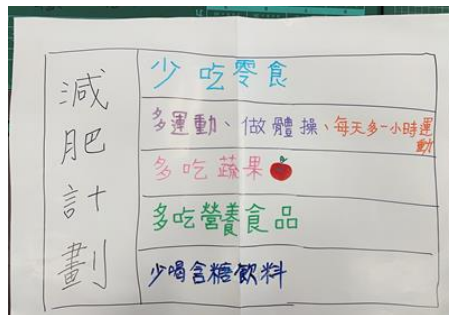 減肥計劃
少吃零食
多運動、做體操、每天多一小時運動
多吃蔬果
多吃營養食品
少喝含糖飲料